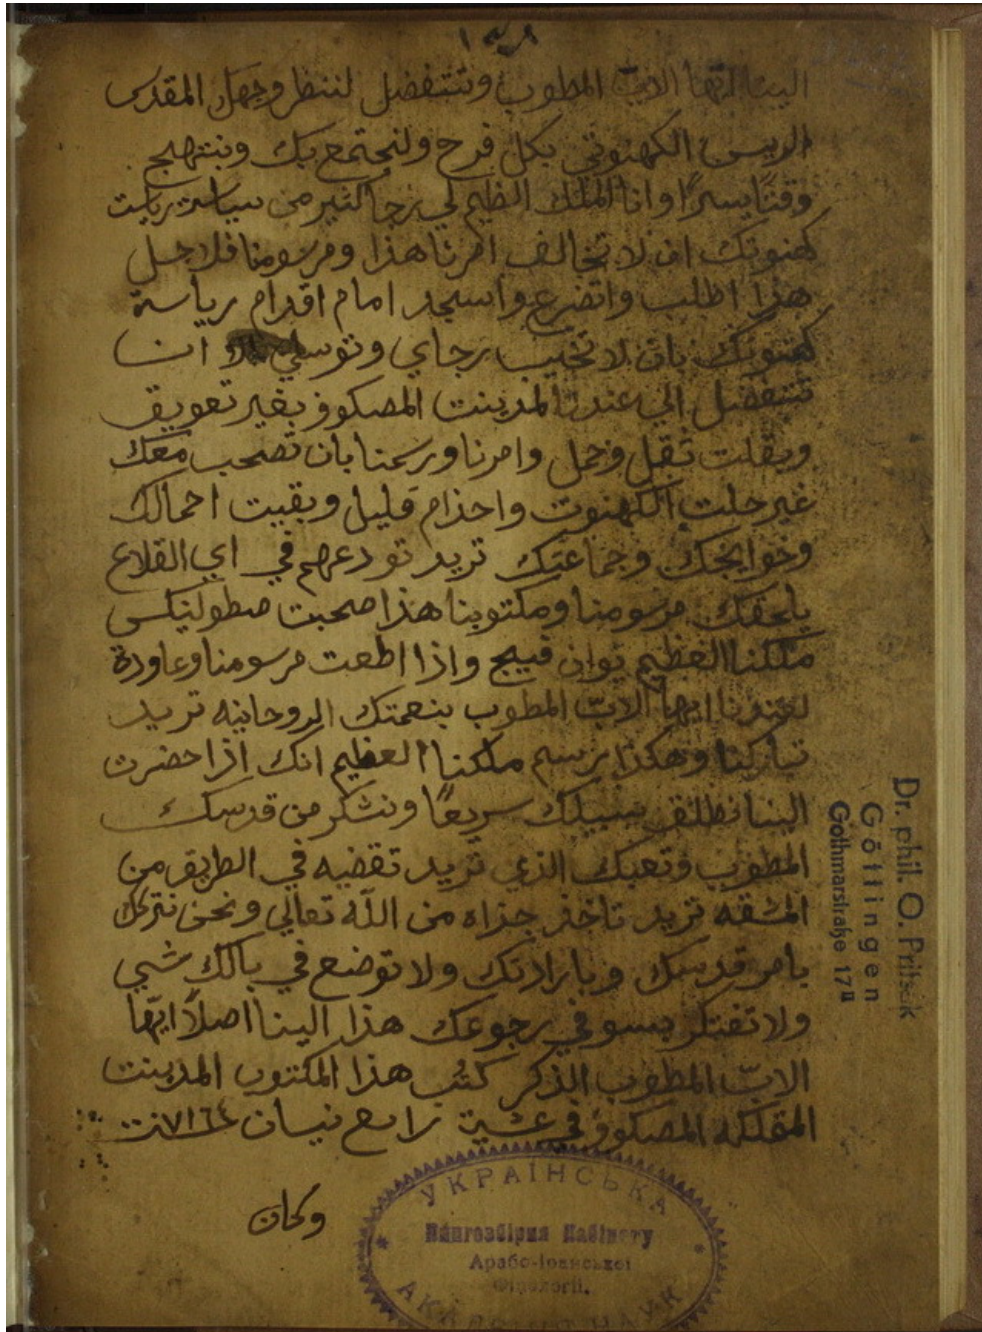 الينا ايها الاب المطوب وتتفضل لننظر وجهك المقدس
الريس الكهنوتي بكل فرح ولنجتمع بك ونبتهج
وقتًا يسيرًا وانا الملك العظيم لي رجا كثير من سياسة رياست
كهنوتك ان لا تخالف امرنا هذا ومرسومنا فلاجل
هذا اطلب واتضرع واسجد امام اقدام رياسة
كهنوتك بان لا تخيب رجاي وتوسلي انا
تتفضل الي عندنا لمدينت المسكوف بغير تعويق
وبقلت ثقل وحمل وامرنا ورسمنا بان تصحب معك
غير حلت الكهنوت واخدام قليل وبقيت احمالك
وحوايجك وجماعتك تريد تودعهم في اي القلاع
يلحقك مرسومنا ومكتوبنا هذا صحبت
ملكنا العظيم يوان واذا اطعت مرسومنا وعاودة
لعندنا ايها الاب المطوب بنعمتك الروحانيه تريد
تباركنا وهكذا برسم ملكنا العظيم انك اذا حضرت
الينا نطلق سبيلك سريعًا ونشكر من قدسك
المطوب وتعبك الذي تريد تقضيه في الطريق من
المشقه تريد تاخذ جزاه من الله تعالي ونحن نتركك
بامر قدسك وبارادتك ولا توضع في بالك شي
ولا تفتكر بسو في رجوعك هذا الينا اصلًا ايها
الابّ المطوب الذكر كتب هذا المكتوب المدينت
المسكوف في عشية رابع نيسان ٧١٦٤
وكان
Dr. phil. O. Pritsak
Göttingen
Gothmarstraße 17 II
УКРАЇНСЬКА
Книгозбірня Кабінету
Арабо-Іранської
Філології.
АКАДЕМІЯ НАУК